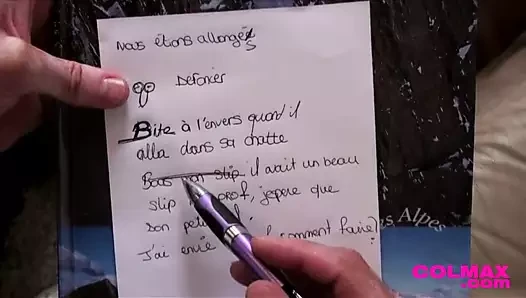 Nous étions allongés
Defoncer
Bite à l'envers quand il
alla dans sa chatte
Sous mon slip il avait un beau
slip prof, j'espere que
son petit
J'ai envie comment faire?
es Alpes
COLMAX
.com